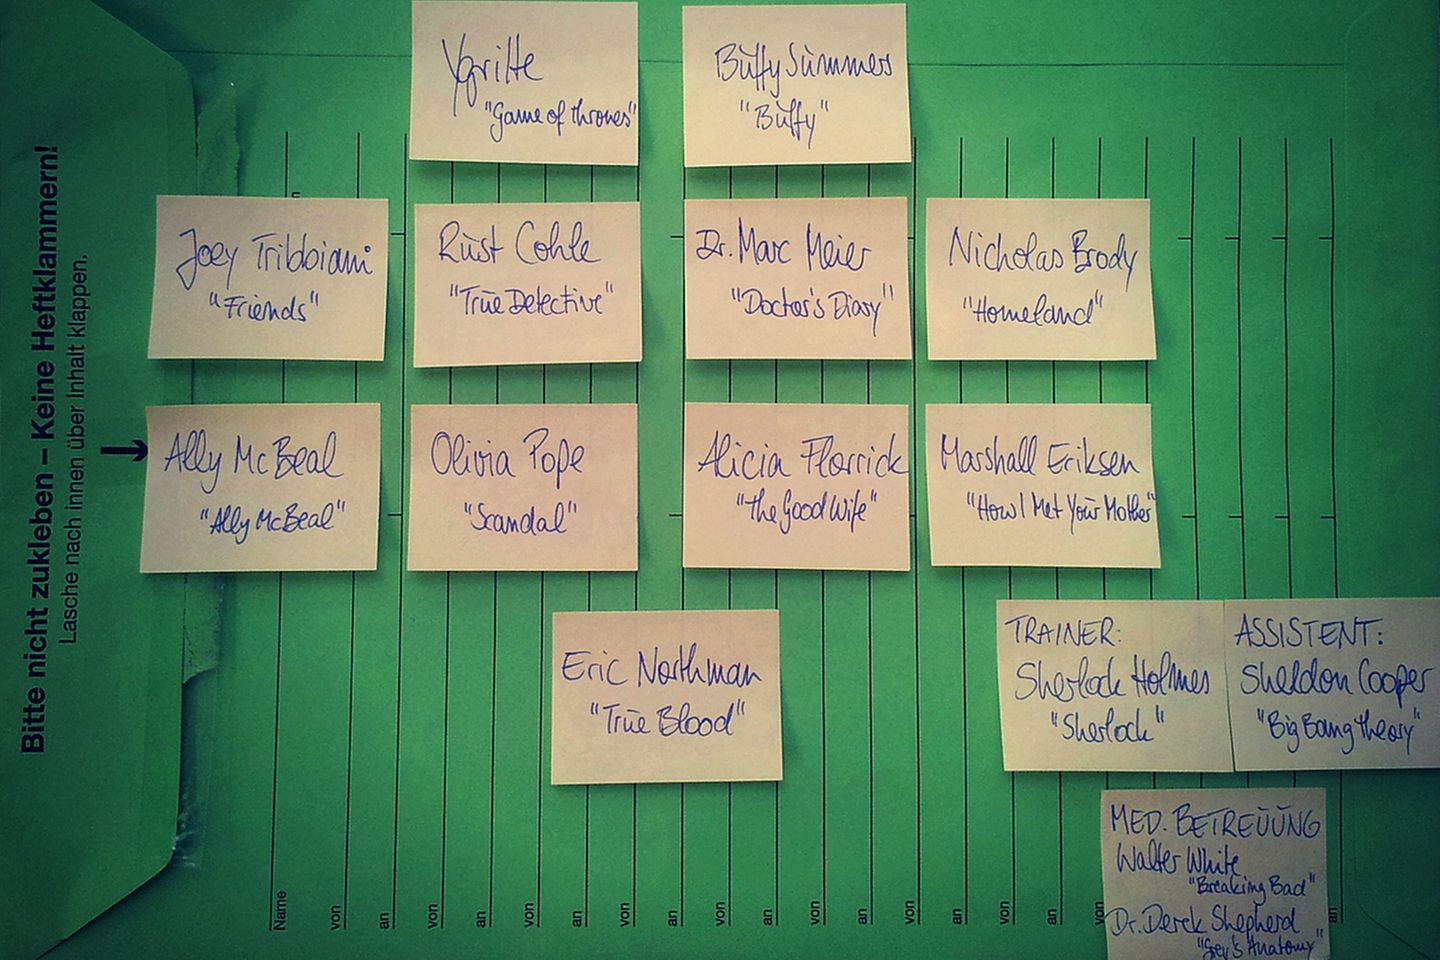 Ygritte
"Game of thrones"
Buffy Summers
"Buffy"
Joey Tribbiani
"Friends"
Rust Cohle
"True Detective"
Dr. Marc Meier
"Doctor's Diary"
Nicholas Brody
"Homeland"
Ally McBeal
"Ally McBeal"
Olivia Pope
"Scandal"
Alicia Florrick
"the Good Wife"
Marshall Eriksen
"How I Met Your Mother"
Eric Northman
"True Blood"
TRAINER:
Sherlock Holmes
"Sherlock"
ASSISTENT:
Sheldon Cooper
"Big Bang theory"
MED. BETREUUNG
Walter White
"Breaking Bad"
Dr. Derek Shepherd
"Grey's Anatomy"
Bitte nicht zukleben – Keine Heftklammern!
Lasche nach innen über Inhalt klappen.
Name
von
an
von
an
von
an
von
an
von
an
von
an
von
an
von
an
von
an